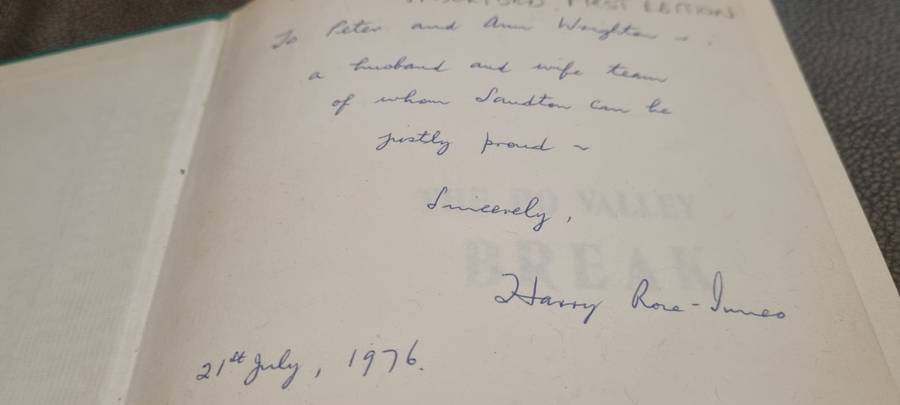 INSCRIBED FIRST EDITION
To Peter and Ann Wrighton -
a husband and wife team
of whom Sandton can be
justly proud ~
Sincerely,
Harry Rose-Innes
21st July, 1976.
VALLEY
BREAK